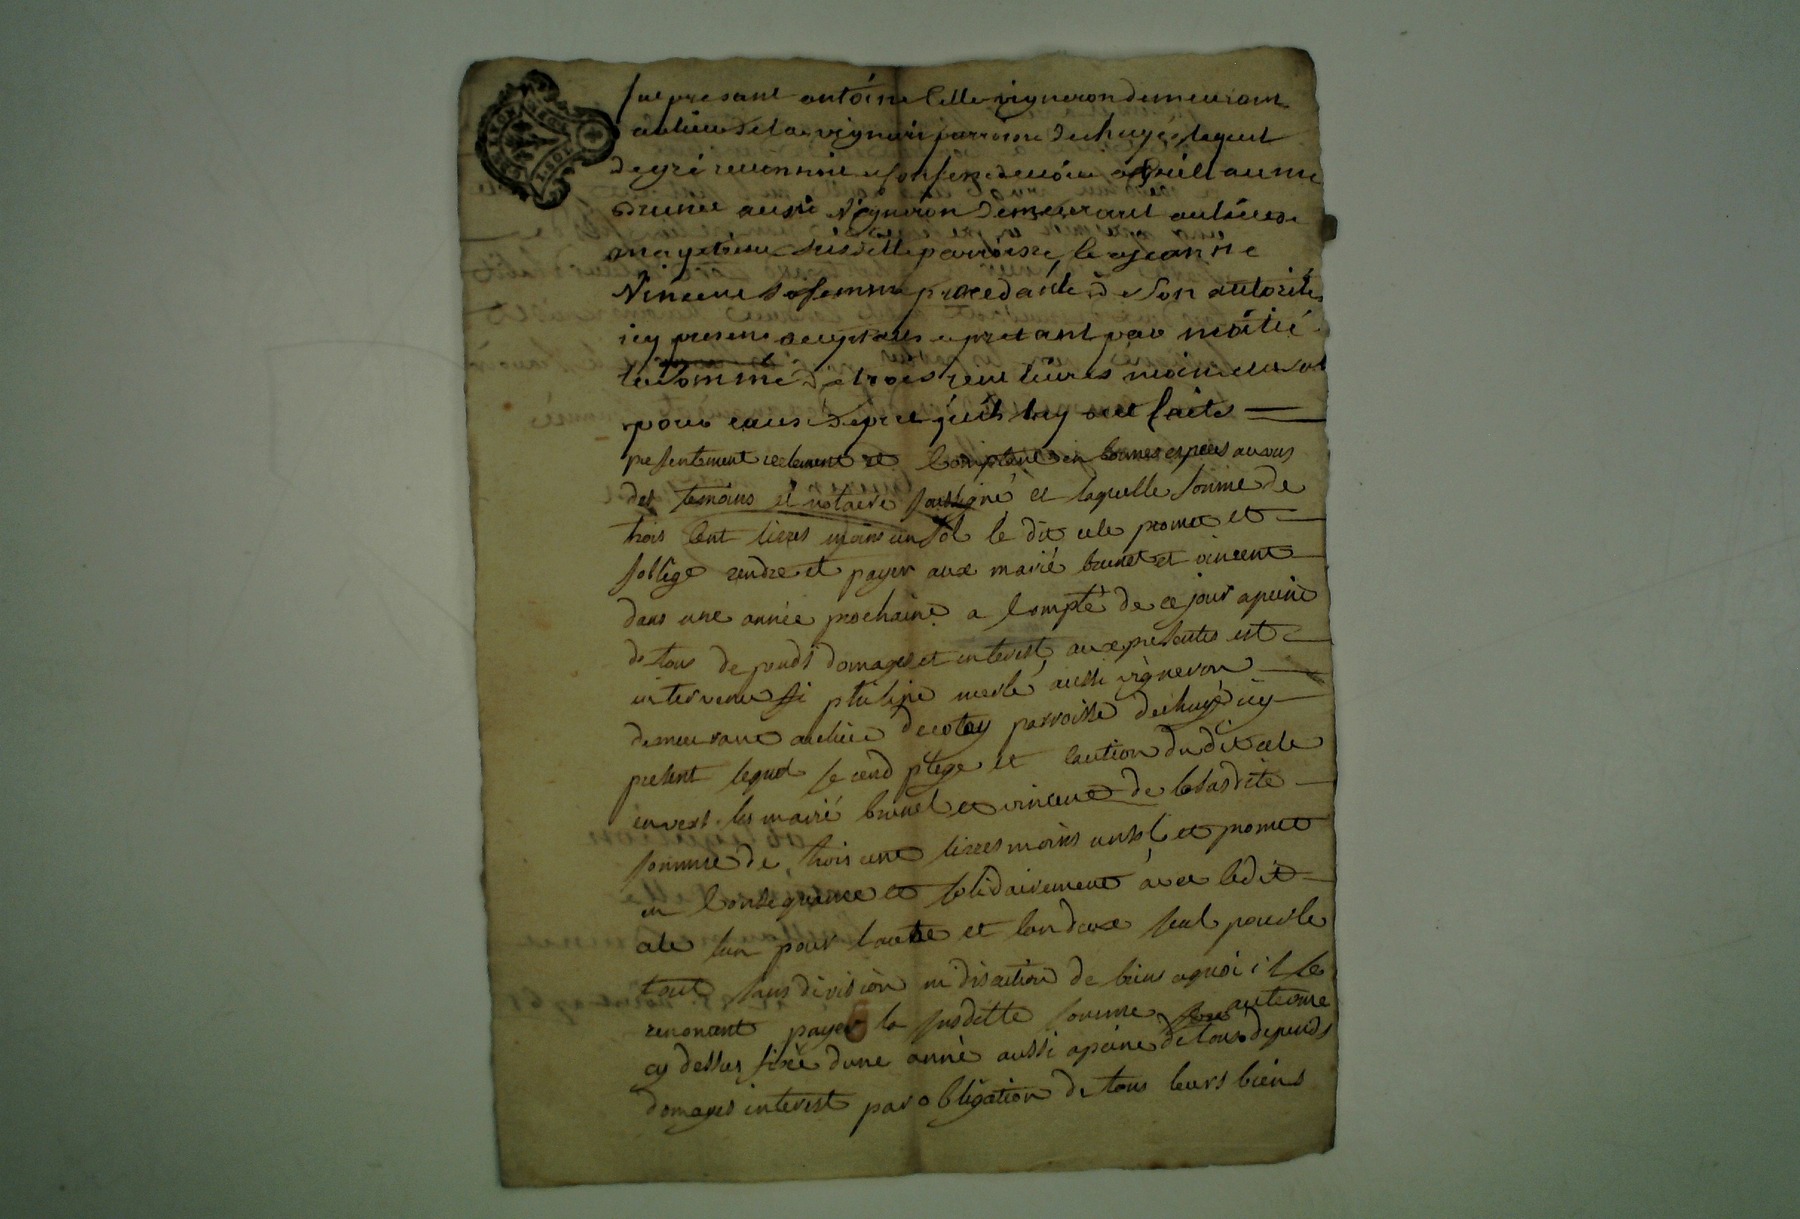 fut presant antoine Celle vigneron demeurant
au lieu de la vigniere parroisse de chuyé lequel
de gré reconnoit et confesse devoir a Guillaume
brunel aussi Vigneron demeurant au lieu de
susditte parroisse, le a jeanne
Vincent sa femme procedante de son autorité
icy present acceptants et pretant par moitié
la Somme de trois cent livres moins un sol
pour cause de pret qu'ils luy ont faite
presentement reelement et Comptant en bonnes especes au vus
des temoins et notaire soussigné et laquelle somme de
trois Cent livres moins un sol le dit cele promet et
soblige rendre et payer aux marié brunel et vincent
dans une année prochaine a Compté de ce jour a peine
de tous depends domages et interest aux presentes est
intervenu philipe merle aussi vigneron
demeurant au lieu de cotay parroisse de chuyé icy
present lequel se rend plege et Caution du dit cele
envers les marié brunel et vincent de la susdite
somme de trois cent livres moins un sol et promet
en Consequance et solidairement avec ledit
cele lun pour lautre et lun deux seul pour le
tout sans division ni discution de biens a quoi il se
renoncent payer la susditte somme au terme
cy dessus fixé dune année aussi a peine de tous depends
domages interest par obligation de tous leurs biens